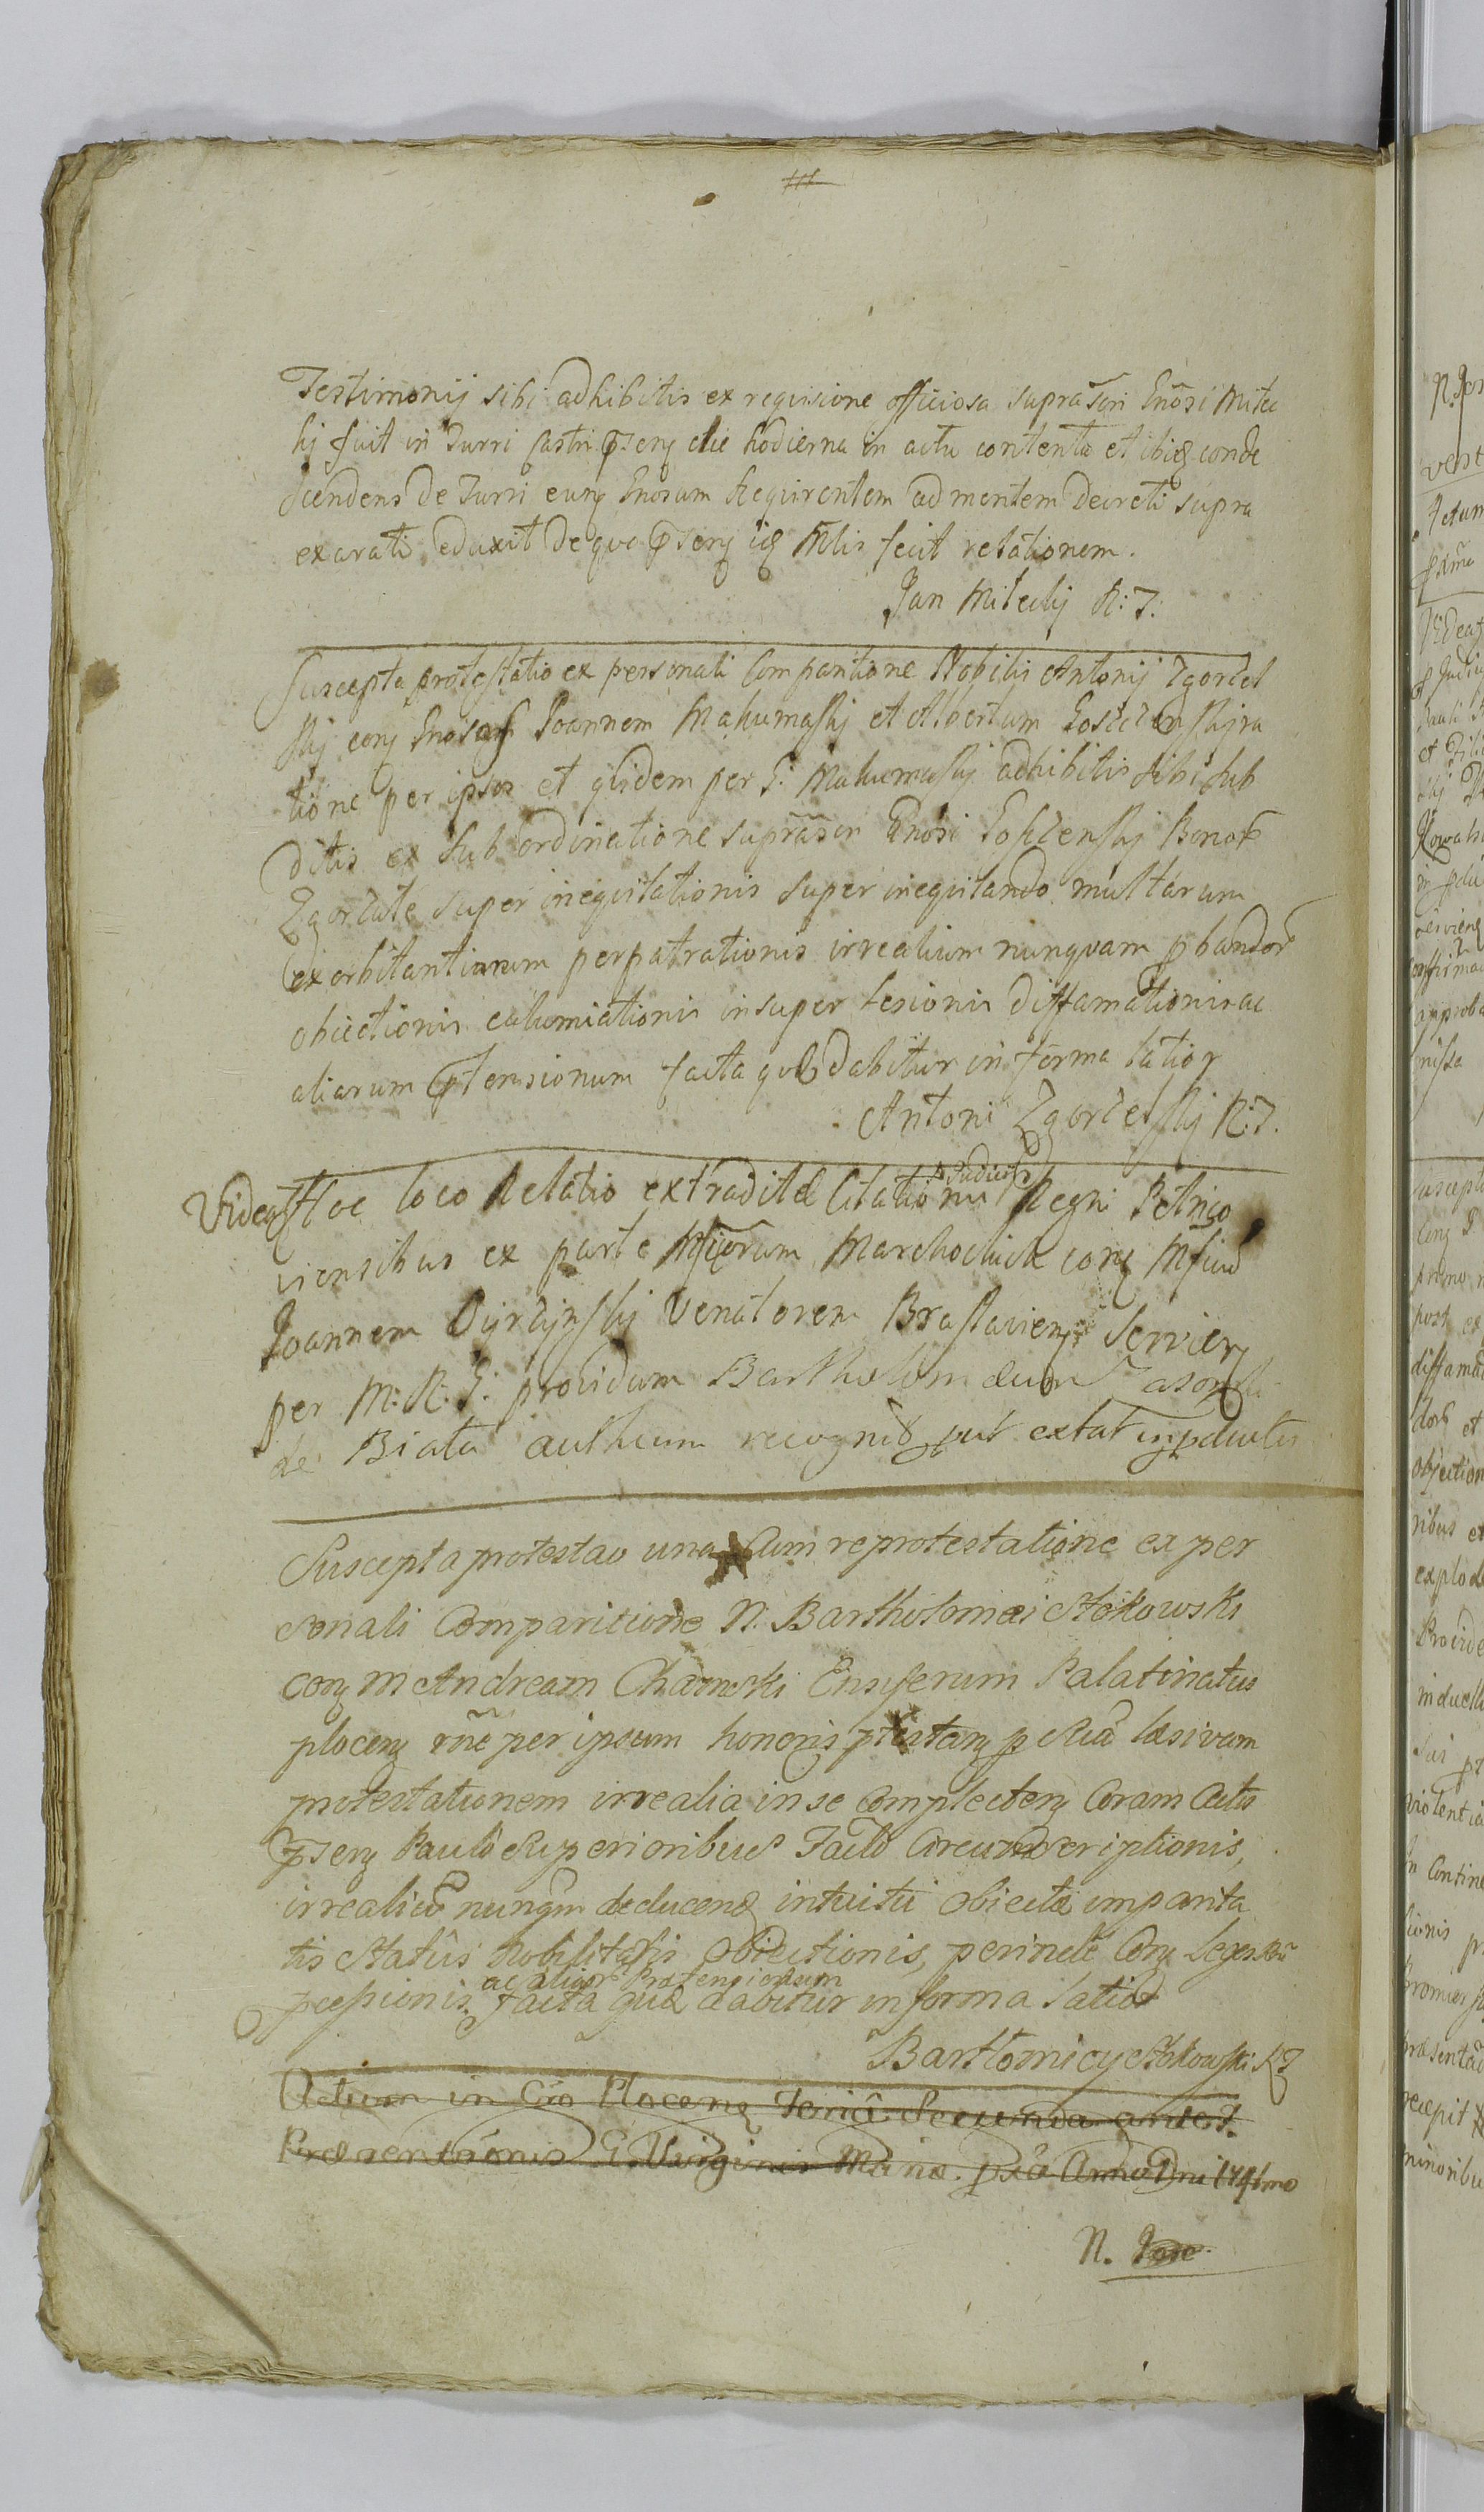 Testimonij sibi adhibitis ex requisicione officiosa suprascri Gnosi Mitec
kj fuit in Turri Castri pnseng die hodierna in actu contenta et ibiq conde
scendens de Turri eung Gnosum Requirentem ad mentem Decreti supra
exarati eduxit de quo pnseng iq Mtlis fecit relationem.
Jan Miteckj R: T:
Suscepta protestatio ex personali Comparitione Nobilis Antonij Zgorzel
skj cong Gnosos Joannem Makumaskj et Albertum ra
tione per ipsos et quidem per G: Makumaskj adhibitis sibi sub
ditis ex Sub ordinatione suprascri Gnosi Bonor
Zgorzałe super inequitationis super inequitando multarum
exorbitantiarum perpatrationis irrealium nunquam pbandor
obiectionis calumiationis insuper lesionis diffamationis ac
aliarum ptensionum facta quæ dabitur in forma latior
Antoni Zgorzelskj R: T.
Videat Hoc loco Relatio extraditæ Citationis Judicior Regni Petrico
viensibus ex parte Mficorum Marchockich cong Mficum
Joannem Dziržynskj Venatorem Braslavieng Servieng
per M: R: G: providum Bartholomæum
de Biała autheum recognit put extat inpductis
Suscepta protestao una Cum reprotestatione ex per
sonali Comparitione N. Bartholomæi Stokowski
cong M Andream Charnski Ensiferum Palatinatus
ploceng rõne per ipsum honoris ptestang p Suã læsivam
protestationem irrealia in se Complecteng Coram Actis
pnseng Paulo Superioribus Factã Circumscriptionis,
irrealiũ nungm deducend intuitu Obiectæ imparita
tis Statûs Nobilitatis Obiectionis, perinde Cong Leges
ac alior Prætensionum
pcepsionis facta quæ dabitur in forma Latior
Bartłomiey Stokowski RT
Actum in Cro Ploceng Feriâ Secunda ante F.
Præsentãonis G. Virginis Mariæ pxâ Anno Dni 1741mo
N.